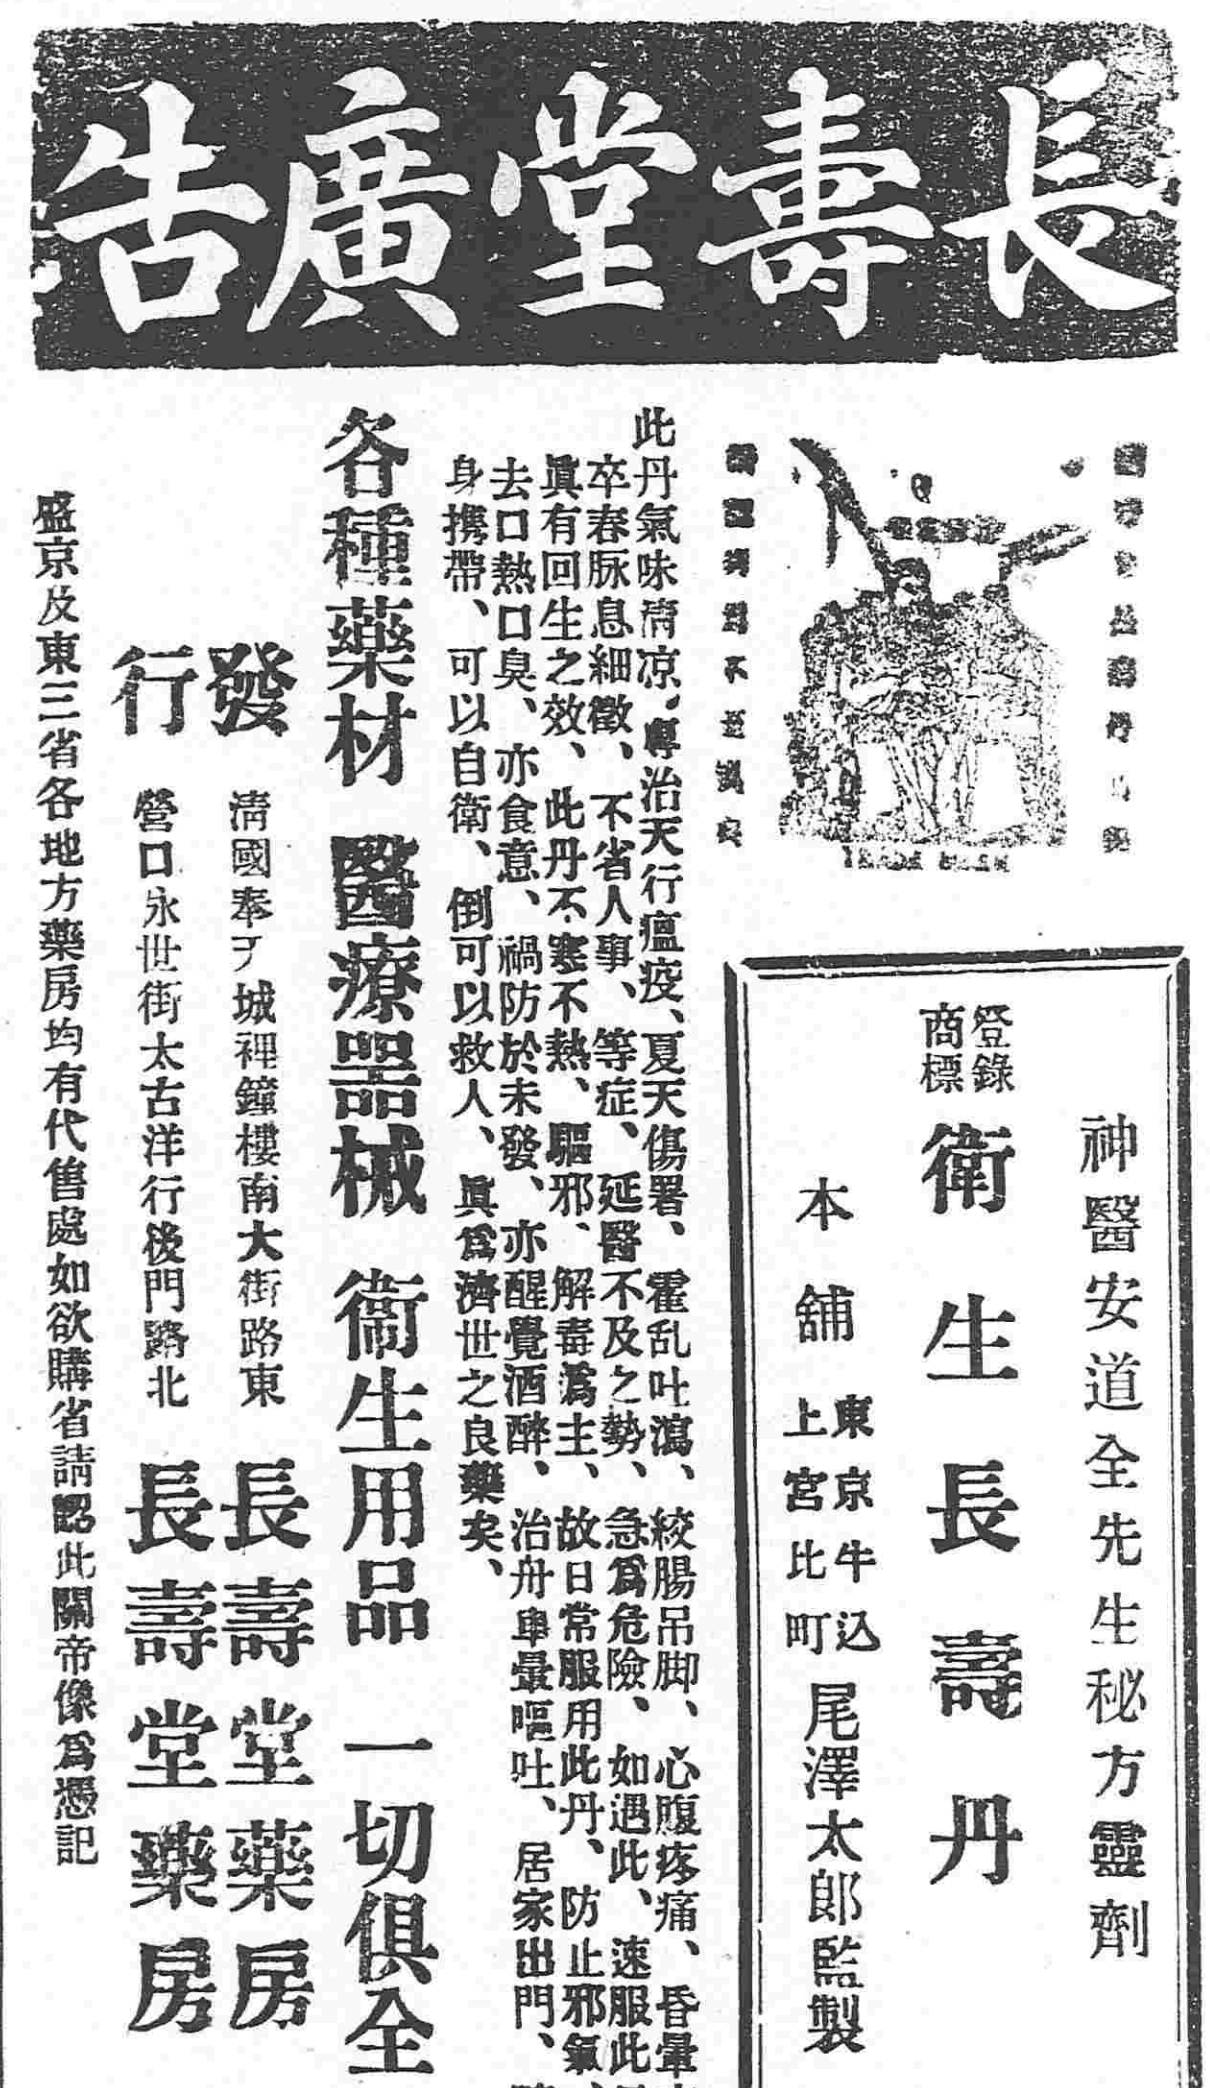 長壽堂廣告
神醫安道全先生秘方靈劑
登錄
商標
衛生長壽丹
本舖
東京牛込
上宮比町
尾澤太郎監製
此丹氣味清凉、專治天行瘟疫、夏天傷署、霍乱吐瀉、絞腸吊脚、心腹疼痛、昏暈
卒春脉息細微、不省人事、等症、延醫不及之勢、急爲危險、如遇此、速服此
眞有回生之效、此丹不寒不熱、驅邪、解毒爲主、故日常服用此丹、防止邪氣、
去口熱口臭、亦食意、禍防於未發、亦醒覺酒醉、治舟車暈嘔吐、居家出門、
身携帶、可以自衛、倒可以救人、眞爲濟世之良藥矣、
各種藥材 醫療器械 衛生用品 一切俱全
發行
清國奉天城裡鐘樓南大街路東 長壽堂藥房
營口永世街太古洋行後門路北 長壽堂藥房
盛京及東三省各地方藥房均有代售處如欲購省請認此關帝像爲憑記